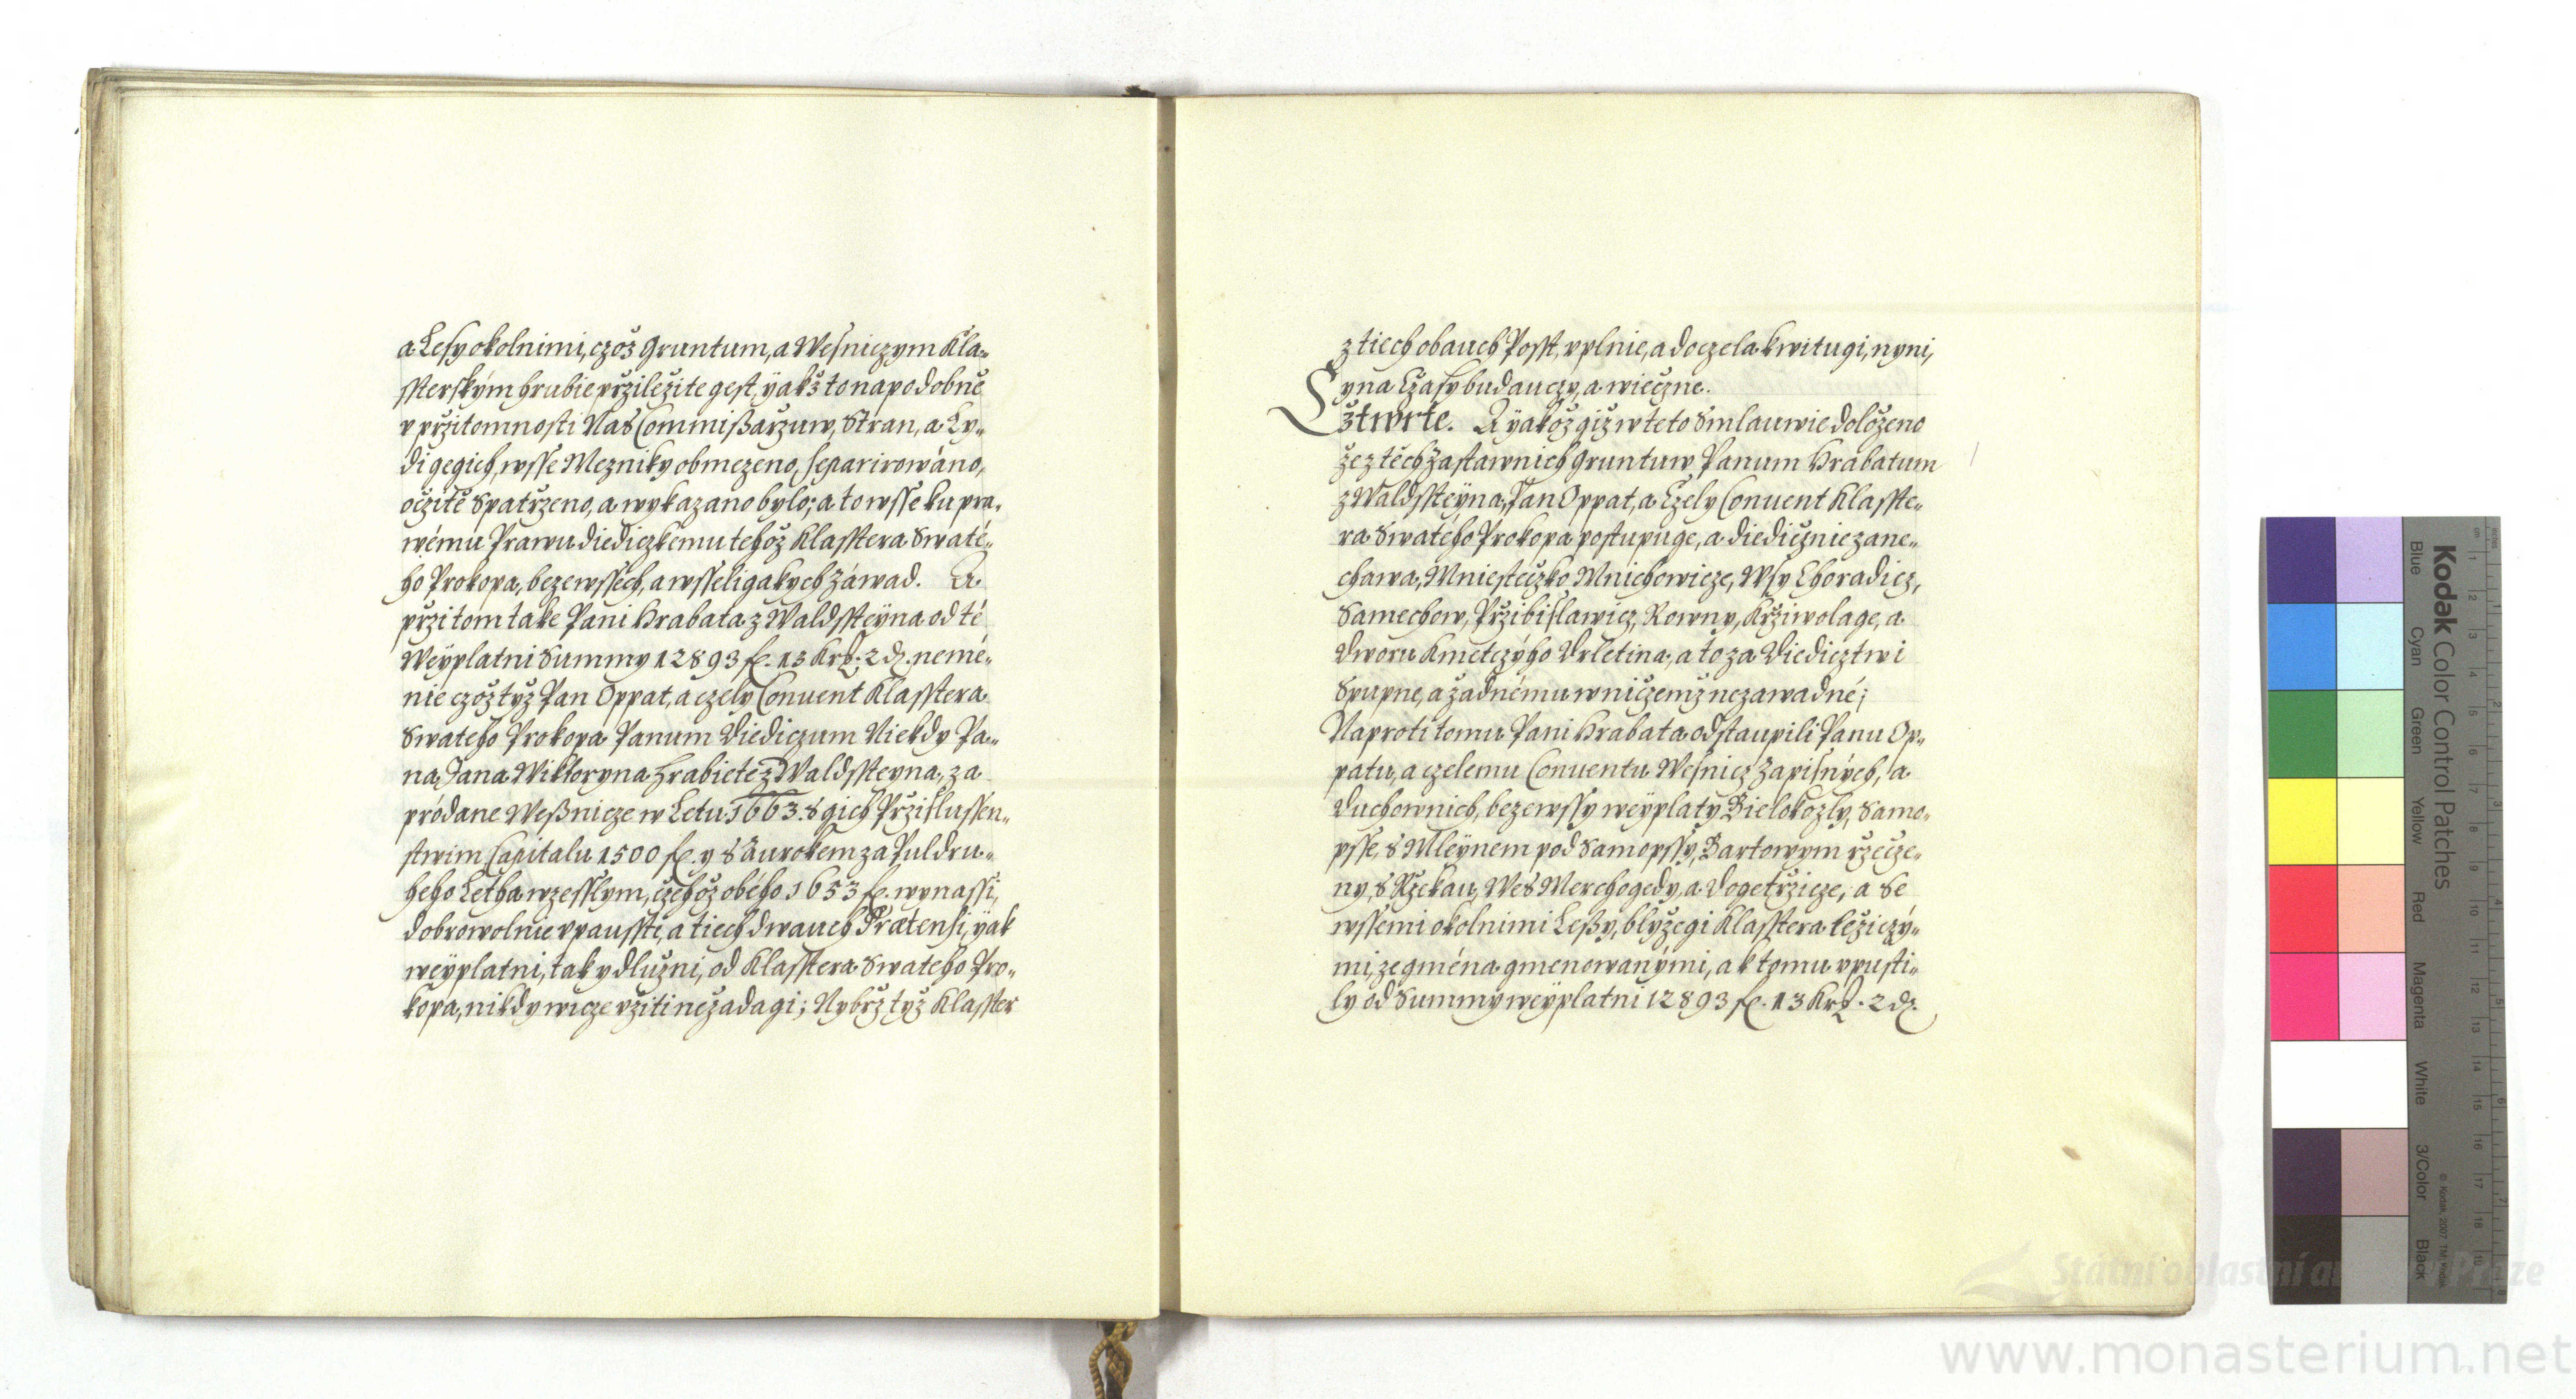 a Lesy okolnimi, czož Gruntum, a Wesniczym Kla„
ssterským hrubie prziležite gest, ÿakž to napodobně
v przitomnosti Nás Commißarzuw, Stran, a Ly„
di gegich, wsse Mezniky obmezeno, separirowáno,
očzitě Spatrzeno, a wykazano bylo; a to wsse ku pra„
wému Prawu diediczkemu tehož Klasstera Swaté„
ho Prokopa, bezewssech, a wsseligakych Záwad. A
przi tom take Pani Hrabata z Waldssteÿna od té
Weÿplatni Summy 12893 fl. 13 Kr. 2 d. nemé„
nie czož tyž Pan Oppat, a czely Conuent Klasstera
Swateho Prokopa Panum Diediczum Niekdy Pa„
na Jana Wiktoryna Hrabiete z Waldssteyna, za
prodane Weßnicze w Letu 1663. S gich Przislussen„
stwim Capitalu 1500 fl. y S aurokem za Puldru„
heho Letha wzesslym, čzehož obého 1653 fl. wynassi,
dobrowolnie vpausste, a tiech dwauch Prætensi, ÿak
weÿplatni, tak y dlužni, od Klasstera Swateho Pro„
kopa, nikdy wicze vžiti nežadagi; Nybrž tyž Klasster
z tiech obauch Posst, vplnie, a doczela kwitugi, nyni,
y na Czasy budauczy, a wiečzne.
Čžtwrte. A ÿakož giž w teto Smlauwie doloženo
že z těch Zastawnich Gruntuw Panum Hrabatum
z Waldssteÿna, Pan Oppat, a Czely Conuent Klasste„
ra Swatého Prokopa postupuge, a diedičznie zane„
chawa, Mniestečzko Mnichowicze, Wsy Choradicz,
Samechow, Przibislawicz, Rowny, Krziwolage, a
Dworu Kmetczýho Vrletina, a to za Diedicztwi
Spupne, a žadnému w ničzemž nezawadné;
Naproti tomu Pani Hrabata odstaupili Panu Op„
patu, a czelemu Conuentu Wesnicz Zapisných, a
Duchownich, bezewssy weÿplaty Bielokozly, Samo„
psse, S Mleÿnem pod Samopssy, Bartowym rzečze„
ny, S Rzekau, Wes Merchogedy, a Dogetrzicze, a Se
wssemi okolnimi Leßy, blyžegi Klasstera ležiczý„
mi, ze gména gmenowanými, a k tomu vpusti„
ly od Summy weÿplatni 12893 fl. 13 Kr. 2 d.
Kodak Color Control Patches
Blue Cyan Green Yellow Red Magenta White 3/Color Black
© Kodak, 2007 TM: Kodak
www.monasterium.net